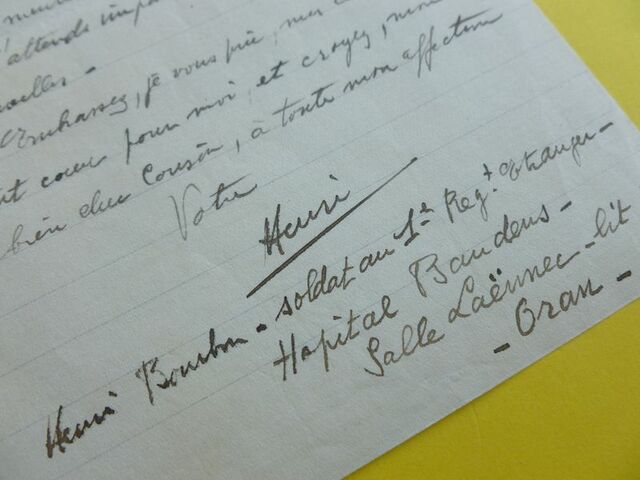 j'attends
Embrassez, je vous prie, mes
cœur pour moi, et croyez, mon
bien cher Cousin, à toute mon affection
Votre
Henri
Henri Bourbon - soldat au 1er Regt Etranger -
Hopital Baudens -
Salle Laënnec - lit
- Oran -